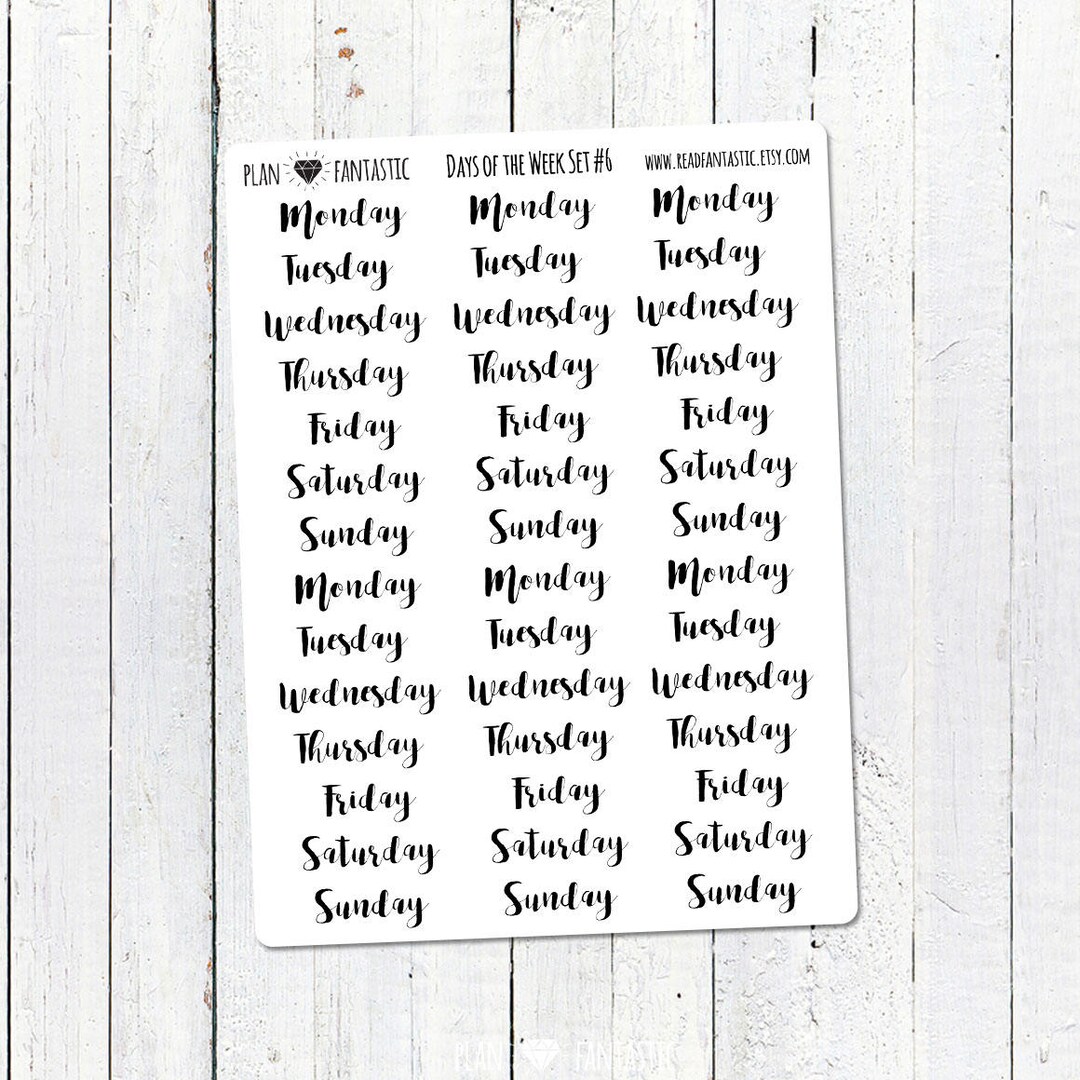 PLAN FANTASTIC DAYS OF THE WEEK SET #6 WWW.READFANTASTIC.ETSY.COM
Monday Monday Monday
Tuesday Tuesday Tuesday
Wednesday Wednesday Wednesday
Thursday Thursday Thursday
Friday Friday Friday
Saturday Saturday Saturday
Sunday Sunday Sunday
Monday Monday Monday
Tuesday Tuesday Tuesday
Wednesday Wednesday Wednesday
Thursday Thursday Thursday
Friday Friday Friday
Saturday Saturday Saturday
Sunday Sunday Sunday
PLAN FANTASTIC